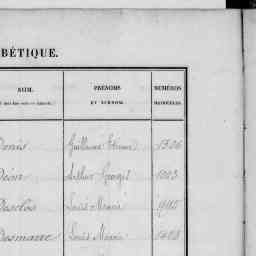 BÉTIQUE.
NOM. PRÉNOMS NUMÉROS
ET SURNOM. MATRICULES.
Denis Guillaume Etienne 1306
Déon Arthur Georges 1003
Desclos Louis Marie
Desmarre Louis Marie